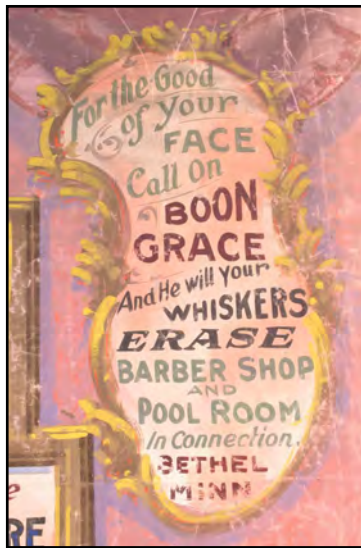 For the Good
of your
FACE
Call On
BOON
GRACE
And He will your
WHISKERS
ERASE
BARBER SHOP
AND
POOL ROOM
In Connection.
BETHEL
MINN
e
RE